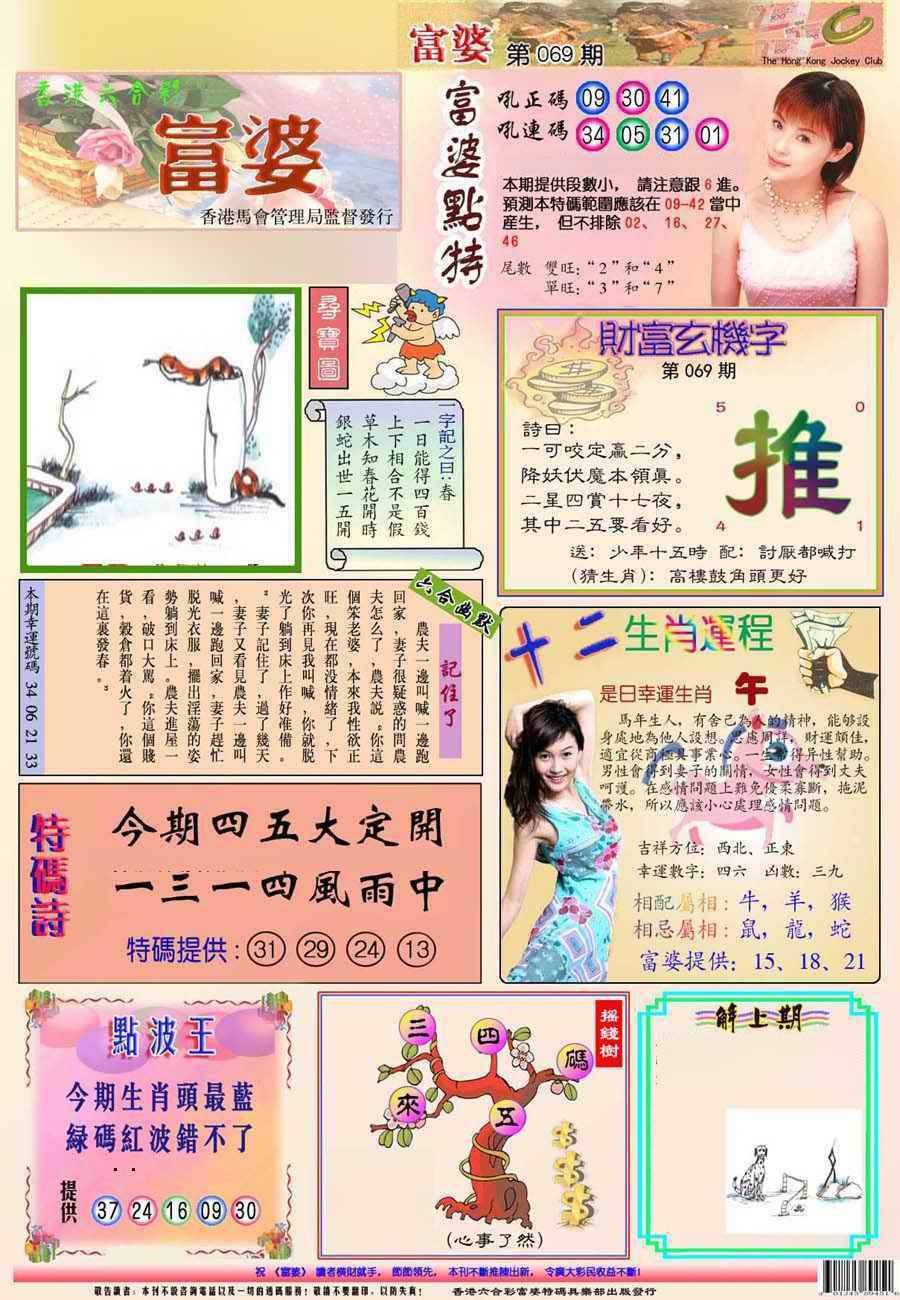 富婆 第069期
The Hong Kong Jockey Club
香港六合彩
富婆
香港馬會管理局監督發行
富婆點特
吼正碼 09 30 41
吼連碼 34 05 31 01
本期提供段數小，請注意跟6進。
預測本特碼範圍應該在09-42當中
産生，但不排除02、16、27、
46
尾數 雙旺:“2”和“4”
單旺:“3”和“7”
尋寶圖
一字記之曰:春
一日能得四百錢
上下相合不是假
草木知春花開時
銀蛇出世一五開
財富玄機字
第069期
5 0
詩曰:
一可咬定贏二分，
降妖伏魔本領眞。
二星四賞十七夜，
其中二五要看好。
推
4 1
送: 少年十五時 配: 討厭都喊打
(猜生肖): 高樓鼓角頭更好
六合幽默
記住了
農夫一邊叫喊一邊跑
回家,妻子很疑惑的問農
夫怎么了,農夫説。你這
個笨老婆,本來我性欲正
旺,現在都没情緒了,下
次你再見我叫喊,你就脱
光了躺到床上作好准備。
"妻子記住了,過了幾天
,妻子又看見農夫一邊叫
喊一邊跑回家,妻子趕忙
脱光衣服,擺出淫蕩的姿
勢躺到床上。農夫進屋一
看,破口大駡"你這個賤
貨,穀倉都着火了,你還
在這裏發春。"
本期幸運號碼 34 06 21 33
十二生肖運程
是日幸運生肖 午
馬年生人，有舍己為人的精神，能够設
身處地為他人設想。思慮周詳，財運頗佳，
適宜從商極具事業心。一生都得异性幫助。
男性會得到妻子的關情，女性會得到丈夫
呵護。在感情問題上難免優柔寡斷，拖泥
帶水，所以應該小心處理感情問題。
吉祥方位: 西北、正東
幸運數字: 四六 凶數: 三九
相配屬相: 牛，羊，猴
相忌屬相: 鼠，龍，蛇
富婆提供: 15、18、21
特碼詩
今期四五大定開
一三一四風雨中
特碼提供: 31 29 24 13
點波王
今期生肖頭最藍
緑碼紅波錯不了
提供 37 24 16 09 30
摇錢樹
三 四 碼
來 五
(心事了然)
解上期
祝 《富婆》 讀者横財就手， 節節領先， 本刊不斷推陳出新， 令廣大彩民收益不斷!
敬告讀者: 本刊不設咨詢電話以及一切的透碼服務! 敬請不要翻印，以防失真! 香港六合彩富婆特碼俱樂部出版發行